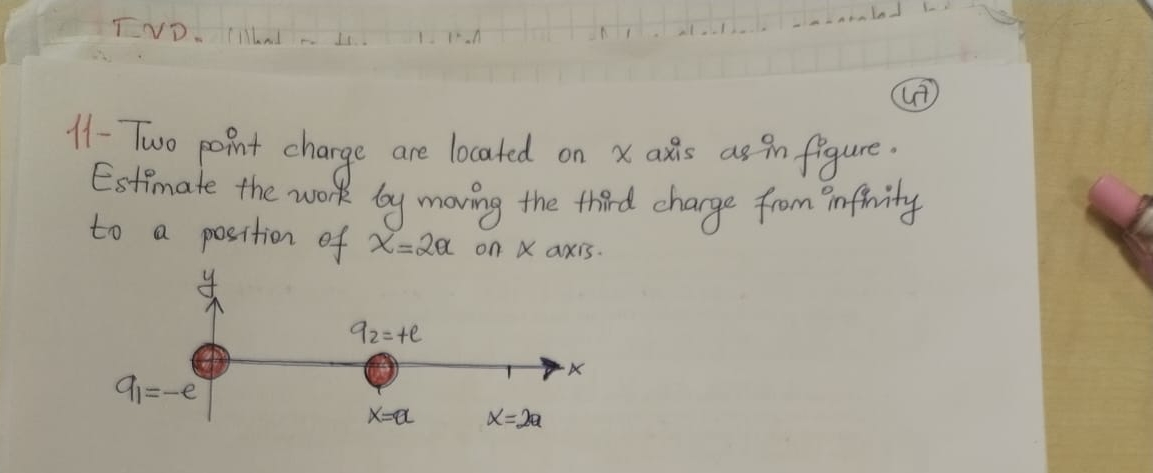 TVD.
47
11- Two point charge are located on x axis as in figure.
Estimate the work by moving the third charge from infinity
to a position of x=2a on x axis.
y
q2=+e
x
q1=-e
x=a
x=2a